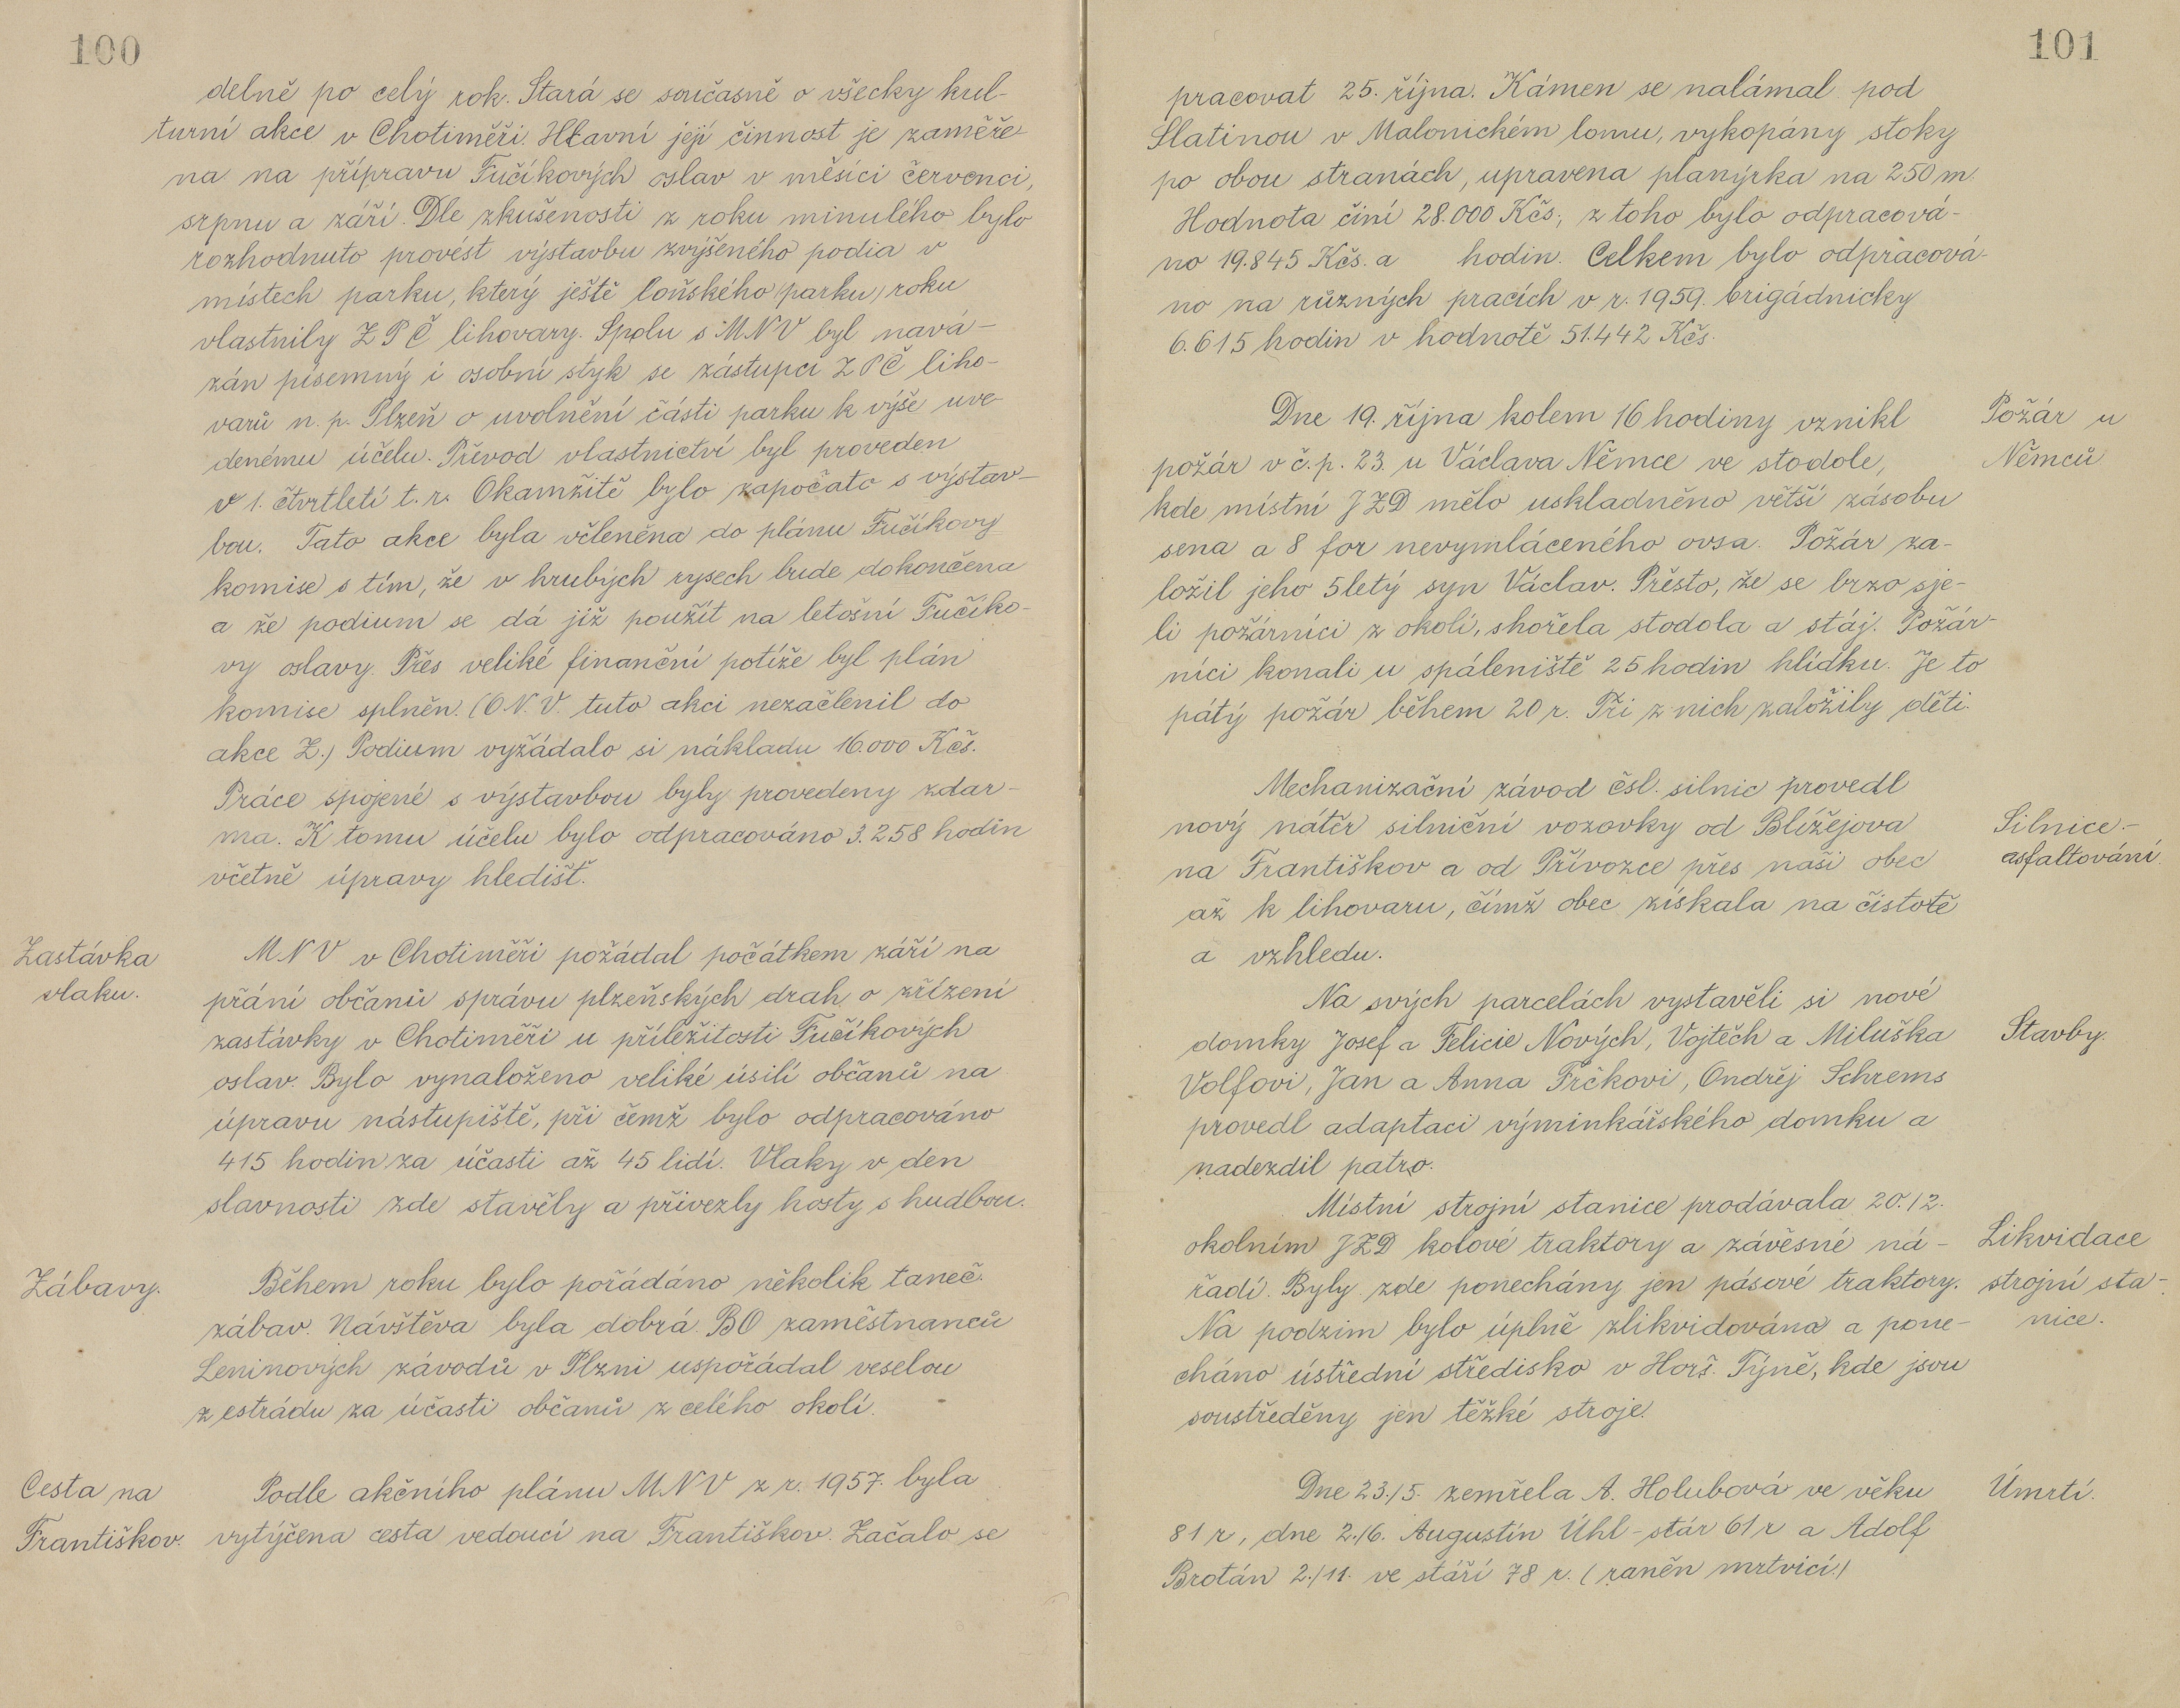 100
delně po celý rok. Stará se současně o všecky kul-
turní akce v Chotiměři. Hlavní její činnost je zaměře-
na na přípravu Fučíkových oslav v měsíci červenci,
srpnu a září. Dle zkušenosti z roku minulého bylo
rozhodnuto provést výstavbu zvýšeného podia v
místech parku, který ještě loňského (parku) roku
vlastnily Z P Č lihovary. Spolu s MNV byl navá-
zán písemný i osobní styk se zástupci Z P Č liho-
varů n. p. Plzeň o uvolnění části parku k výše uve-
denému účelu. Převod vlastnictví byl proveden
v 1. čtvrtletí t. r. Okamžitě bylo započato s výstav-
bou. Tato akce byla včleněna do plánu Fučíkovy
komise s tím, že v hrubých rysech bude dokončena
a že podium se dá již použít na letošní Fučíko-
vy oslavy. Přes veliké finanční potíže byl plán
komise splněn. (O.N.V. tuto akci nezačlenil do
akce Z.) Podium vyžádalo si nákladu 16.000 Kčs.
Práce spojené s výstavbou byly provedeny zdar-
ma. K tomu účelu bylo odpracováno 3.258 hodin
včetně úpravy hledišť.
Zastávka
vlaku.
MNV v Chotiměři požádal počátkem září na
přání občanů správu plzeňských drah o zřízení
zastávky v Chotiměři u příležitosti Fučíkových
oslav. Bylo vynaloženo veliké úsilí občanů na
úpravu nástupiště, při čemž bylo odpracováno
415 hodin za účasti až 45 lidí. Vlaky v den
slavnosti zde stavěly a přivezly hosty s hudbou.
Zábavy.
Během roku bylo pořádáno několik taneč.
zábav. Návštěva byla dobrá. BO zaměstnanců
Leninových závodů v Plzni uspořádal veselou
z estrádu za účasti občanů z celého okolí.
Cesta na
Františkov.
Podle akčního plánu MNV z r. 1957. byla
vytýčena cesta vedoucí na Františkov. Začalo se
101
pracovat 25. října. Kámen se nalámal pod
Slatinou v Malonickém lomu, vykopány stoky
po obou stranách, upravena planýrka na 250 m.
Hodnota činí 28.000 Kčs, z toho bylo odpracová-
no 19.845 Kčs. a hodin. Celkem bylo odpracová-
no na různých pracích v r. 1959. brigádnicky
6.615 hodin v hodnotě 51.442 Kčs.
Požár u
Němců
Dne 19. října kolem 16 hodiny vznikl
požár v č. p. 23. u Václava Němce ve stodole,
kde místní JZD mělo uskladněno větší zásobu
sena a 8 for nevymláceného ovsa. Požár za-
ložil jeho 5letý syn Václav. Přesto, že se brzo sje-
li požárníci z okolí, shořela stodola a stáj. Požár-
níci konali u spáleniště 25 hodin hlídku. Je to
pátý požár během 20 r. Tři z nich založily děti.
Silnice-
asfaltování.
Mechanizační závod čsl. silnic provedl
nový nátěr silniční vozovky od Blížejova
na Františkov a od Přívozce přes naši obec
až k lihovaru, čímž obec získala na čistotě
a vzhledu.
Stavby.
Na svých parcelách vystavěli si nové
domky Josef a Felicie Nových, Vojtěch a Miluška
Volfovi, Jan a Anna Frčkovi, Ondřej Schrems
provedl adaptaci výminkářského domku a
nadezdil patro.
Likvidace
strojní sta-
nice.
Místní strojní stanice prodávala 20./2.
okolním JZD kolové traktory a závěsné ná-
řadí. Byly zde ponechány jen pásové traktory.
Na podzim bylo úplně zlikvidována a pone-
cháno ústřední středisko v Horš. Týně, kde jsou
soustředěny jen těžké stroje.
Úmrtí.
Dne 23./5. zemřela A. Holubová ve věku
81 r, dne 2./6. Augustin Úhl - stár 61 r a Adolf
Brotán 2./11. ve stáří 78 r. (raněn mrtvicí.)